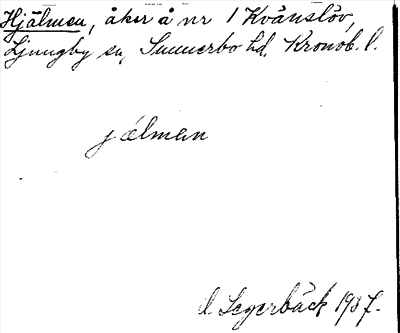 Hjälmen, åker å nr 1 Kvänslöv,
Ljungby sn, Sunnerbo hd, Kronob. l.
jälmen
Segerbäck 1937.